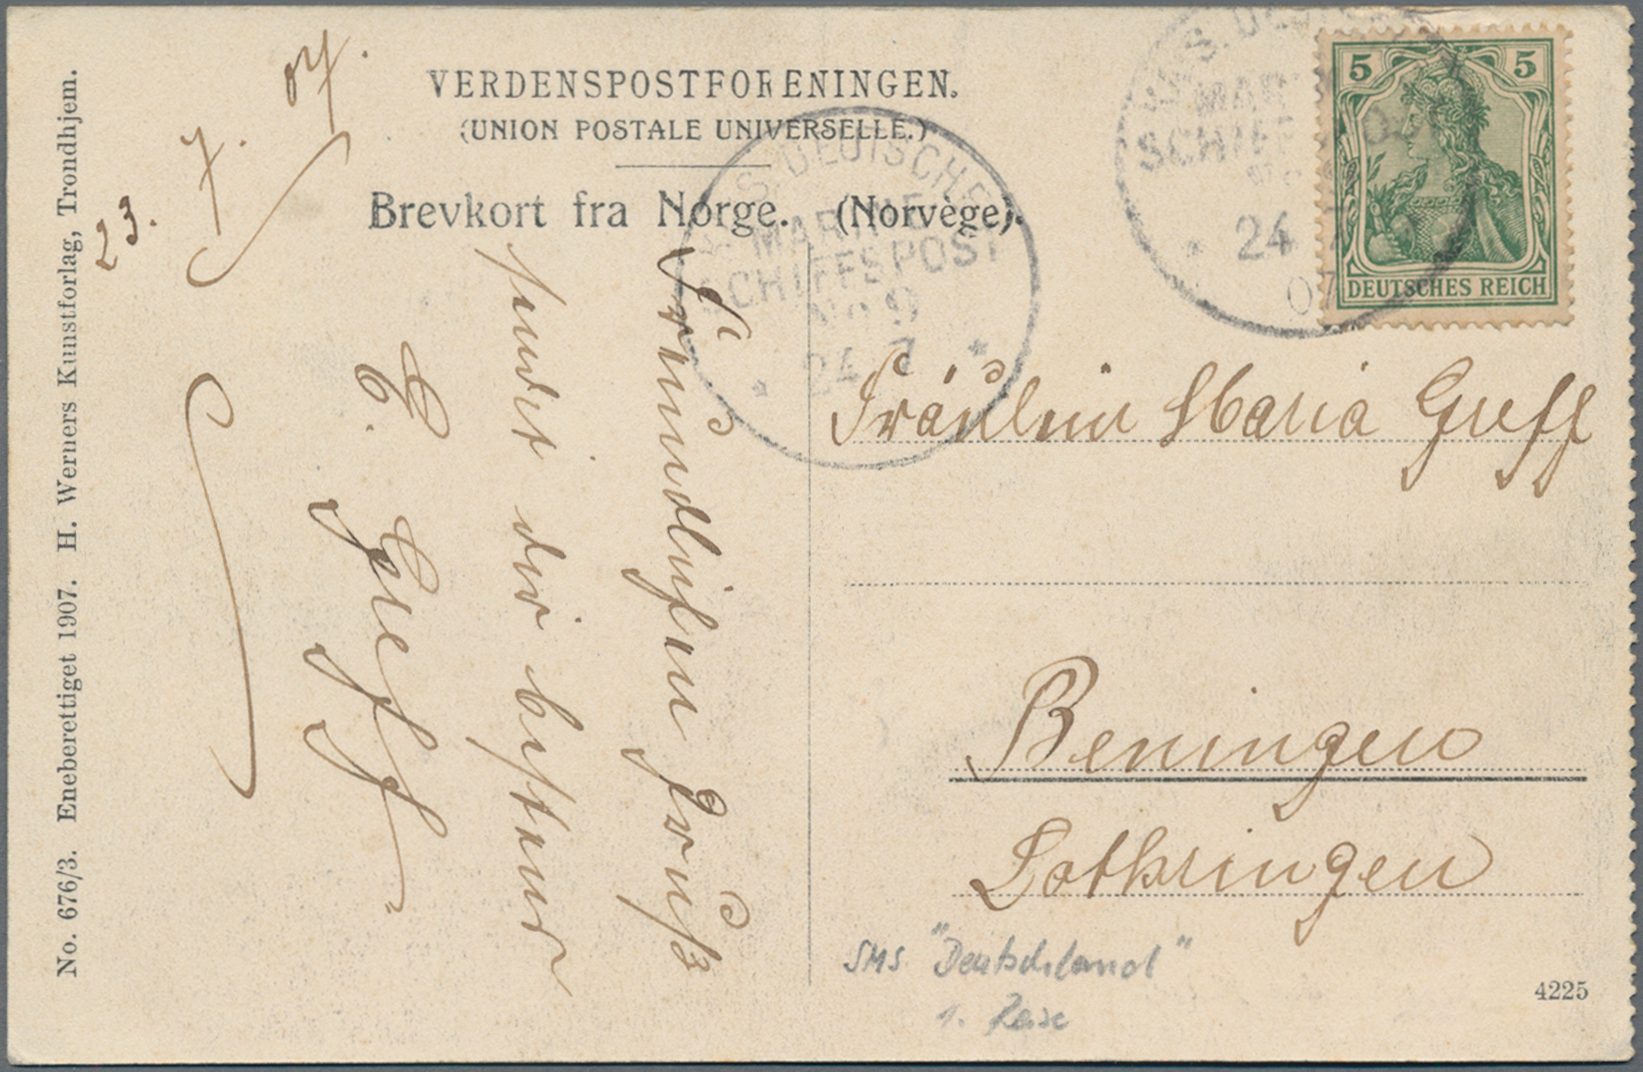 VERDENSPOSTFORENINGEN.
(UNION POSTALE UNIVERSELLE.)
Brevkort fra Norge. (Norvège).
No. 676/3. Eneberettiget 1907. H. Werners Kunstforlag, Trondhjem.
23. 7. 07.
Freundlichen Gruß
sendet dir
C. Greff
DEUTSCHE
MARINE
SCHIFFSPOST
No 9
24 7
MAR
SCHIFF
24 7
07
5 5
DEUTSCHES REICH
Fräulein Maria Greff
Beningen
Lothringen
SMS "Deutschland"
1. Reise
4225